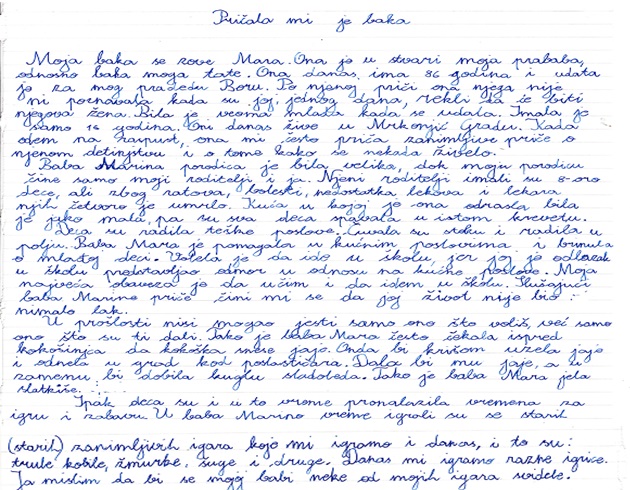 Pričala mi je baka
Moja baka se zove Mara. Ona je u stvari moja prababa,
odnosno baka moga tate. Ona danas ima 86 godina i udata
je za mog pradedu Boru. Po njenoj priči ona njega nije
ni poznavala kada su joj, jednog dana, rekli da će biti
njegova žena. Bila je veoma mlada kada se udala. Imala je
samo 16 godina. Oni danas žive u Mrkonjić Gradu. Kada
odem na raspust, ona mi često priča zanimljive priče o
njenom detinjstvu i o tome kako se nekada živelo.
Baba Marina porodica je bila velika, dok moju porodicu
čine samo moji roditelji i ja. Njeni roditelji imali su 8-oro
dece, ali zbog ratova, bolesti, nedostatka lekova i lekara
njih četvoro je umrlo. Kuća u kojoj je ona odrasla bila
je jako mala, pa su sva deca spavala u istom krevetu.
Deca su radila teške poslove. Čuvala su stoku i radila u
polju. Baba Mara je pomagala u kućnim poslovima i brinula
o mlađoj deci. Volela je da ide u školu, jer joj je odlazak
u školu predstavljao odmor u odnosu na kućne poslove. Moja
najveća obaveza je da učim i da idem u školu. Slušajući
baba Marine priče čini mi se da joj život nije bio
nimalo lak.
U prošlosti nisi mogao jesti samo ono što voliš, već samo
ono što su ti dali. Tako je baba Mara često čekala ispred
kokošinja da kokoška snese jaje. Onda bi krišom uzela jaje
i odnela u grad kod poslastičara. Dala bi mu jaje, a u
zamenu bi dobila kuglu sladoleda. Tako je baba Mara jela
slatkiše.
Ipak deca su i u to vreme pronalazila vremena za
igru i zabavu. U baba Marino vreme igrali su se starih
(starih) zanimljivih igara koje mi igramo i danas, i to su:
trule kobile, žmurke, šuge i druge. Danas mi igramo razne igrice.
Ja mislim da bi se mojoj babi neke od mojih igara svidele.